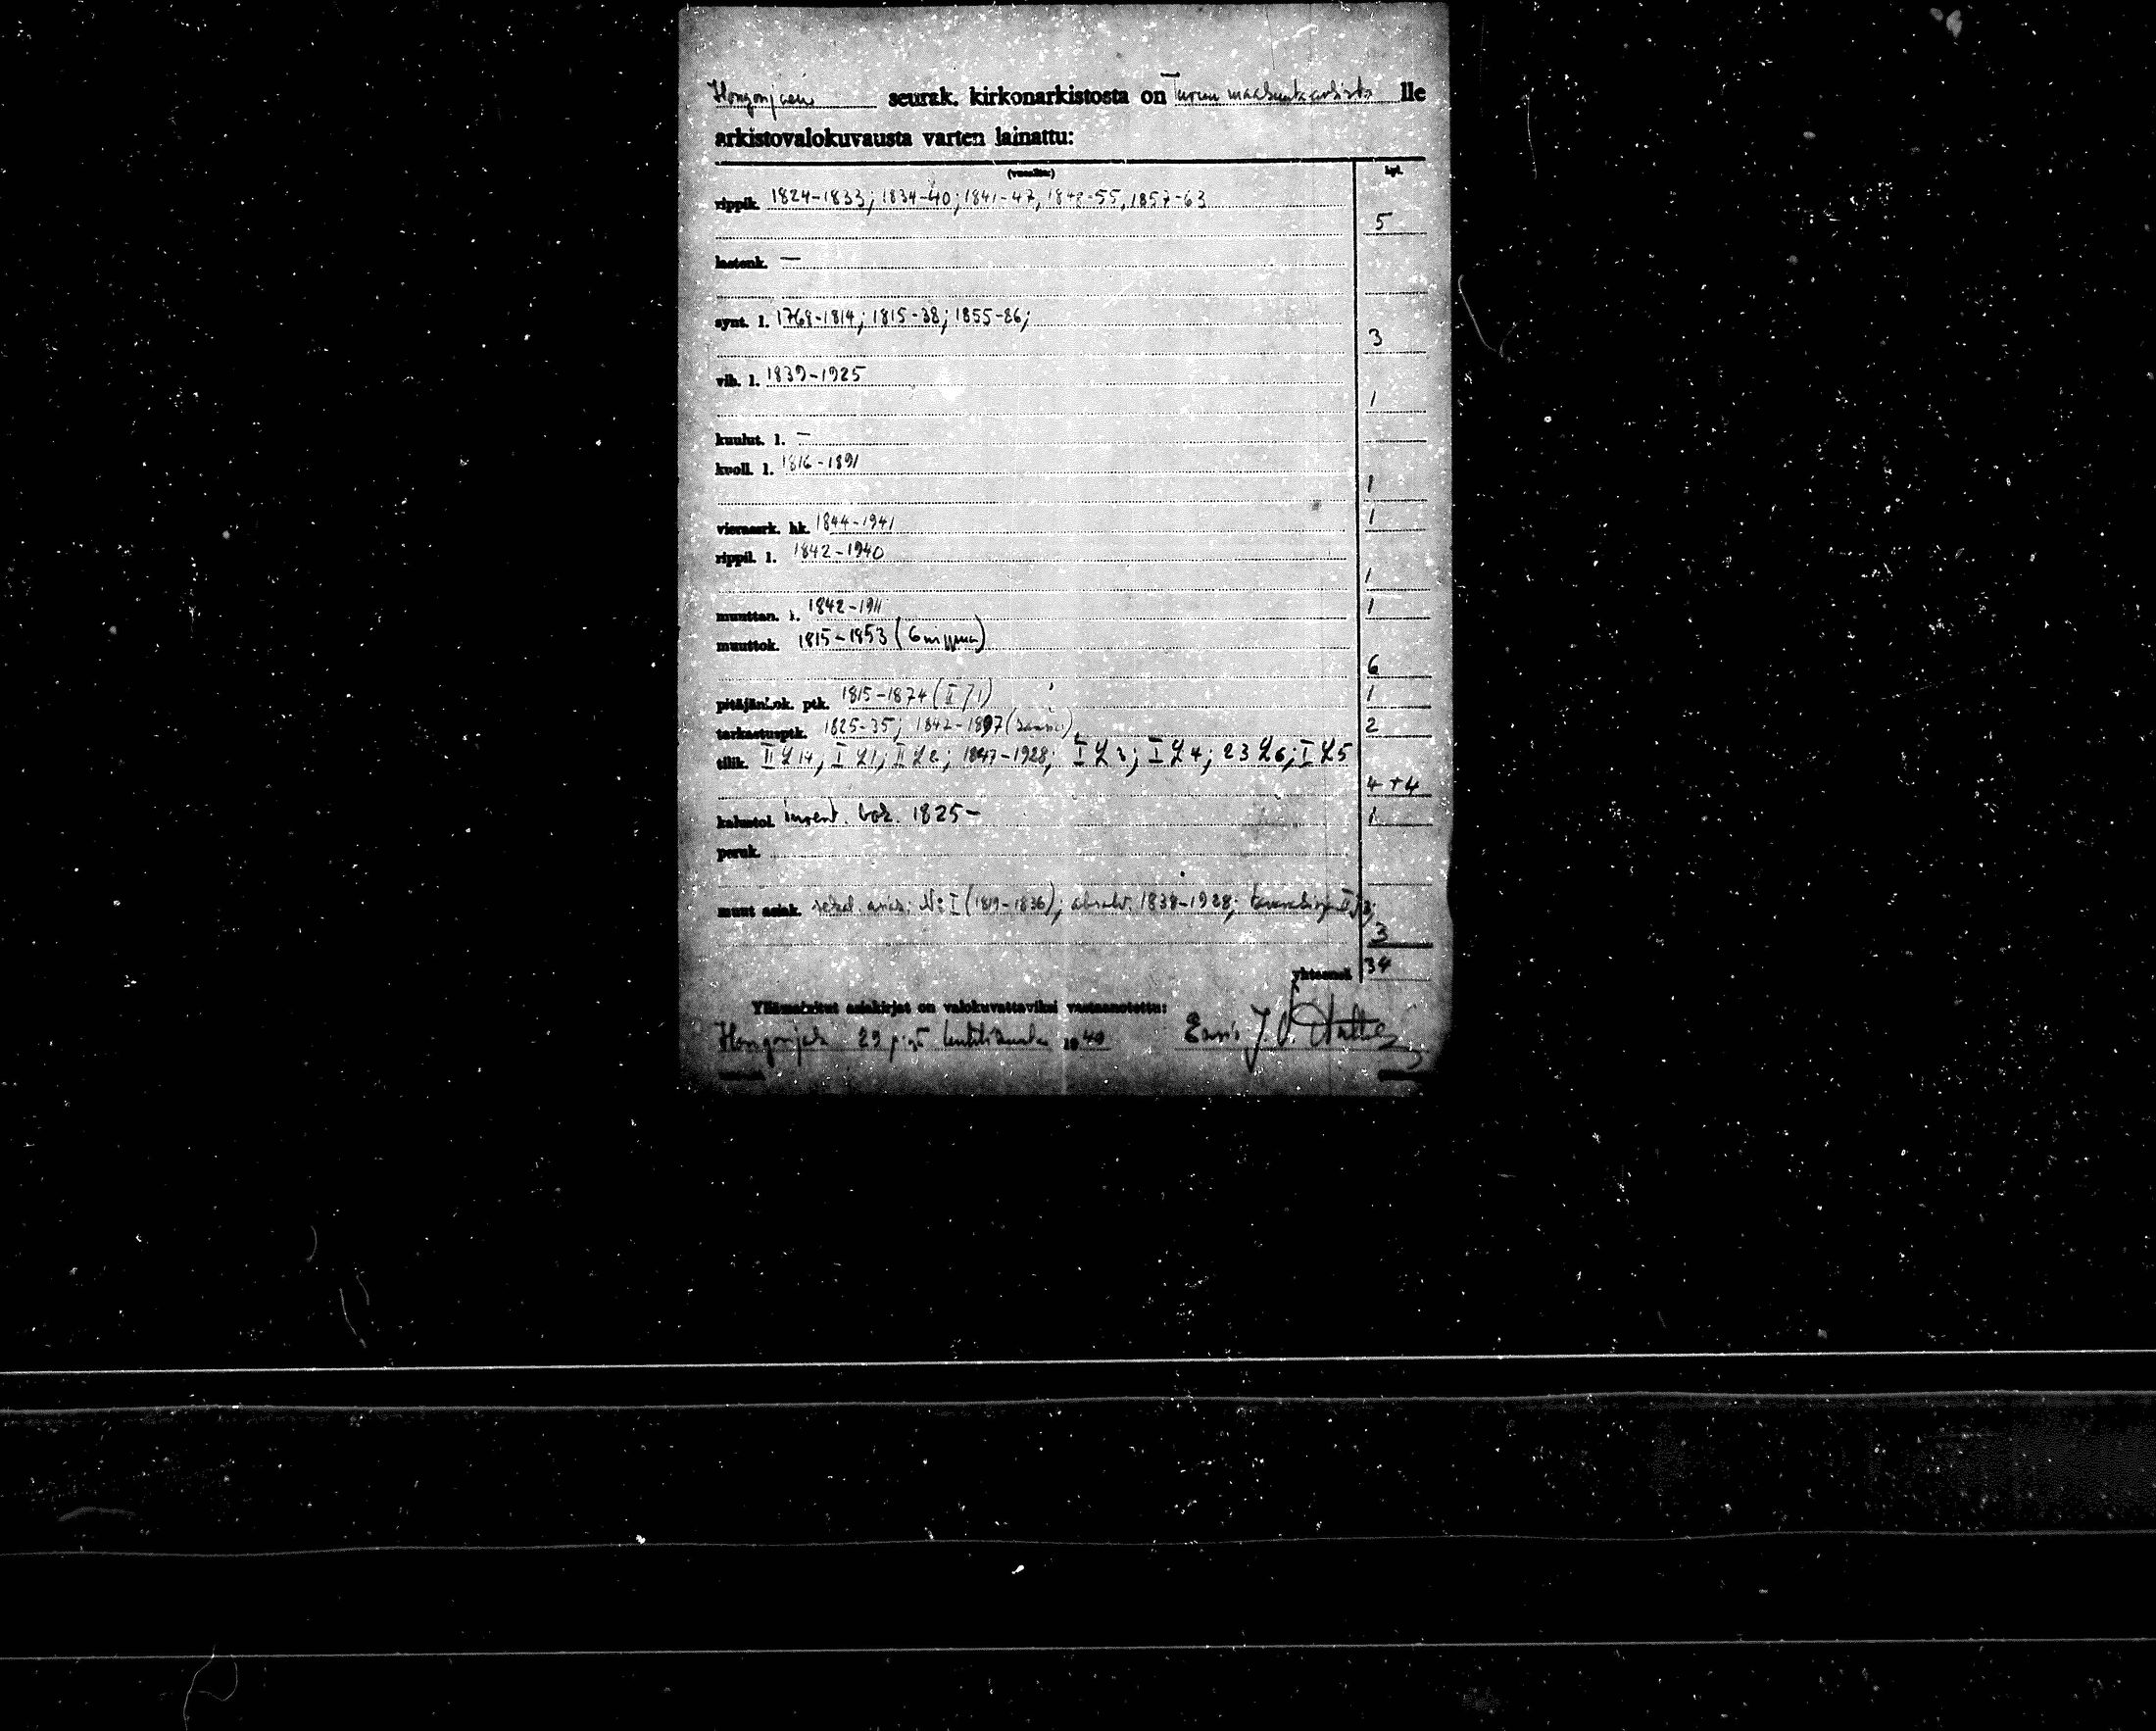 Hongonjoen seurak. kirkonarkistosta on Turun maakuntaarkisto lle
arkistovalokuvausta varten lainattu:
(vuosilta:) kpl.
rippik. 1824-1833; 1834-40; 1841-47, 1848-55, 1857-63
5
lastenk. —
synt. l. 1768-1814; 1815-38; 1855-86;
3
vih. l. 1839-1925
1
kuulut. l. —
kuoll. l. 1816-1891
1
vieraserk. hk. 1844-1941 1
rippil. l. 1842-1940
1
muuttan. l. 1842-1911 1
muuttok. 1815-1853 (6 nippua)
6
pitäjänkok. ptk. 1815-1874 (II / 1) 1
tarkastusptk. 1825-35; 1842-1897 2
tilik. 1847-1928;
4 + 4
kalustol. Invent. bok. 1825- 1
peruk.
muut asiak. N:o I (1819-1836); 1838-1928;
3
yhteensä 34
Yllämainitut asiakirjat on valokuvattaviksi vastaanotettu:
29 p:nä huhtikuuta 1949